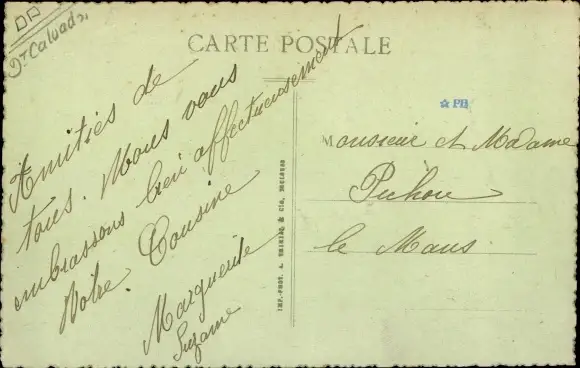 Dt Calvados
CARTE POSTALE
Amitiés de
tous. Nous vous
embrassons bien affectueusement
Votre Cousine
Marguerite
Suzanne
IMP.-PHOT. A. & Cie,
PB
Monsieur et Madame
Pichon
le Mans